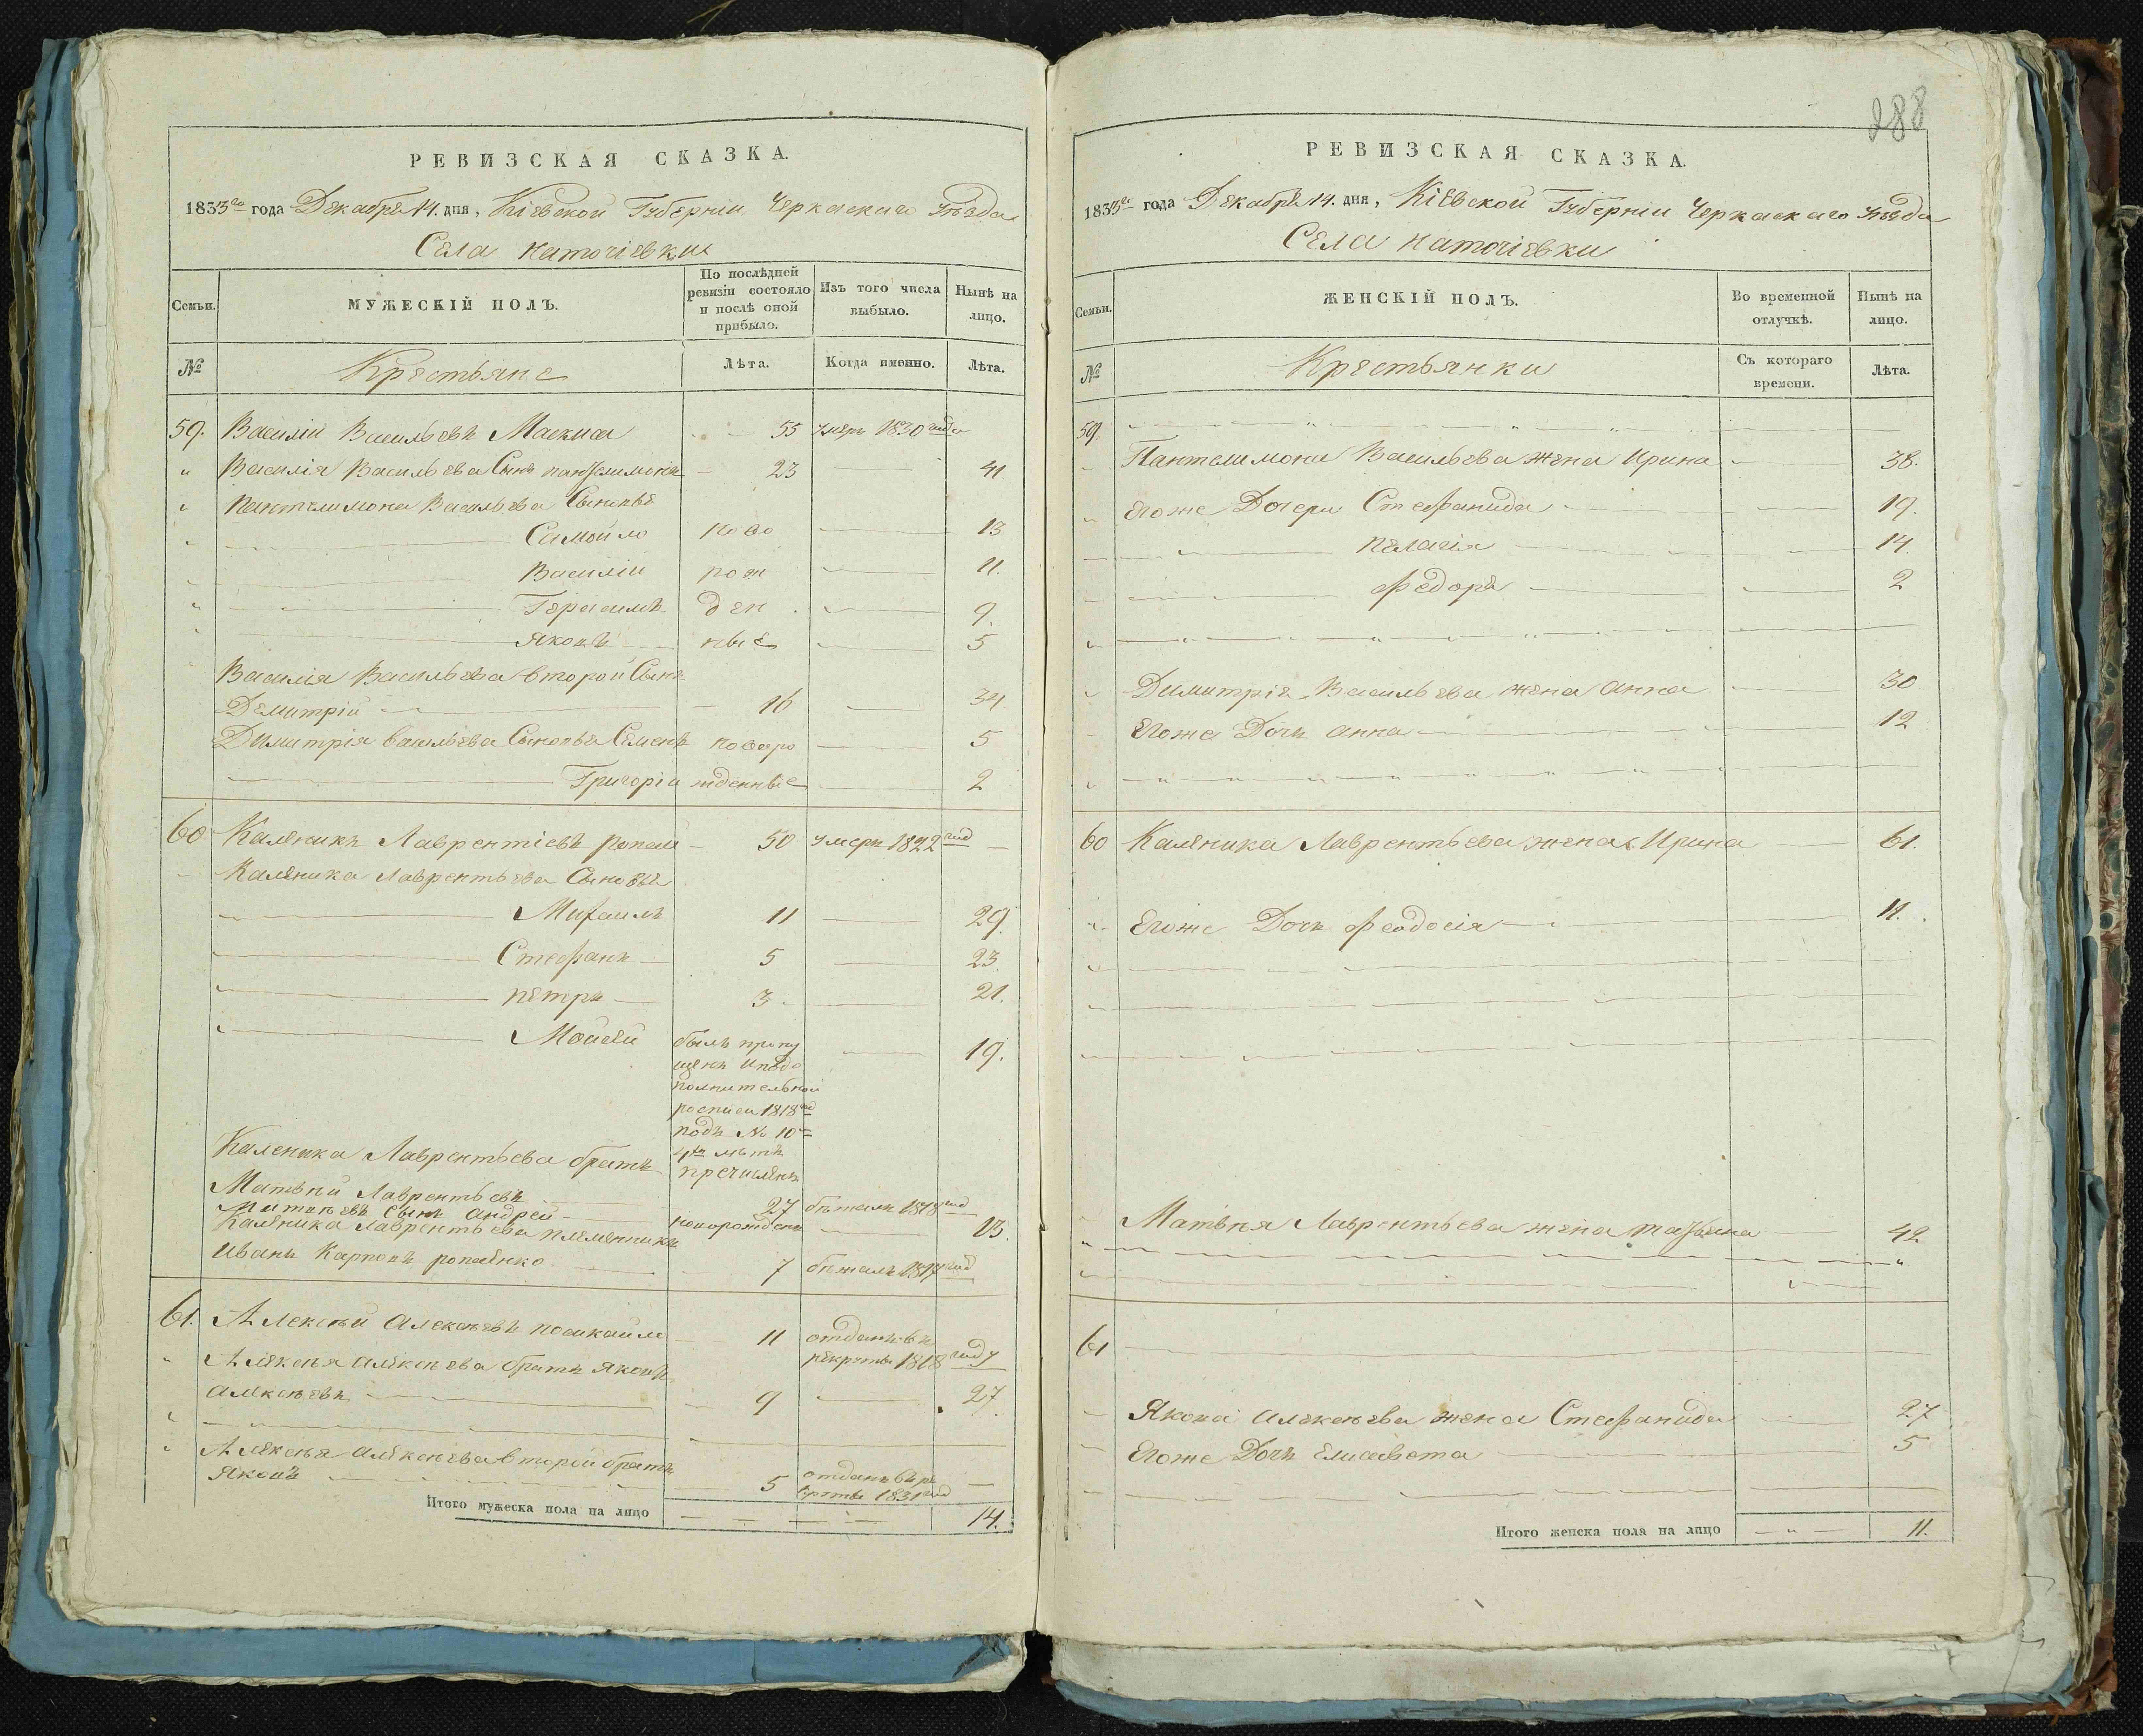 РЕВИЗСКАЯ СКАЗКА.
1833го года Декабря 14. дня, Кіевской Губерніи Черкаскаго Уѣзда
Села
Семьи.
МУЖЕСКІЙ ПОЛЪ.
По послѣдней ревизіи состояло и послѣ оной прибыло.
Изъ того числа выбыло.
Нынѣ на лицо.
№
Крестьяне
Лѣта.
Когда именно.
Лѣта.
59. Василій Васильевъ 55 умеръ 1830 года
Василія Васильева Сынъ пантелимонъ 23 41
Пантелимона Васильева Сыновья
Самойло ново 13
Василій рож 11.
Герасимъ ден 9.
Яковъ ные 5
Василія Васильева второй Сынъ
Демитрій 16 34
Димитрія васильева Сыновья Семенъ новоро 5
Григорій жденные 2
60 Каленикъ Лаврентіевъ 50 умеръ 1822 год
Каленика Лаврентьева Сыновья
Михаилъ 11 29.
Стефанъ 5 23.
петръ 3 21.
Мойсей былъ пропу 19.
щенъ
полнительной
росписи 1818 год
подъ № 10
4 лѣтъ
Каленика Лаврентьева братъ
Матвѣй Лаврентьевъ 27 бѣжалъ 1818 год
Сынъ андрей новорожденъ 13.
Каленика Лаврентьева племянникъ
Иванъ Карповъ 7 бѣжалъ 1817 год
61. Алексѣй Алексѣевъ 11 отданъ въ
рекруты 1818 году
Алексѣя алексѣева братъ Яковъ
алексѣевъ 9 27
Алексѣя алексѣева второй братъ
Яковъ 5 отданъ въ ре
круты 1831 год
Итого мужеска пола на лицо 14.
288
РЕВИЗСКАЯ СКАЗКА.
1833го года Декабря 14. дня, Кіевской Губерніи Черкаскаго Уѣзда
Села
Семьи.
ЖЕНСКІЙ ПОЛЪ.
Во временной отлучкѣ.
Нынѣ на лицо.
№
Крестьянки
Съ котораго времени.
Лѣта.
59.
Пантелимона Васильева жена Ирина 38.
Егоже Дочери Стефанида 19.
пелагія 14.
федора 2
Димитрія Васильева жена анна 30
Егоже Дочь анна 12
60 Каленика Лаврентьева жена Ирина 61.
Егоже Дочь феодосія 11.
Матвѣя Лаврентьева жена татьяна 42
61
Якова алексѣева жена Стефанида 27
Егоже Дочь Елисавета 5
Итого женска пола на лицо 11.